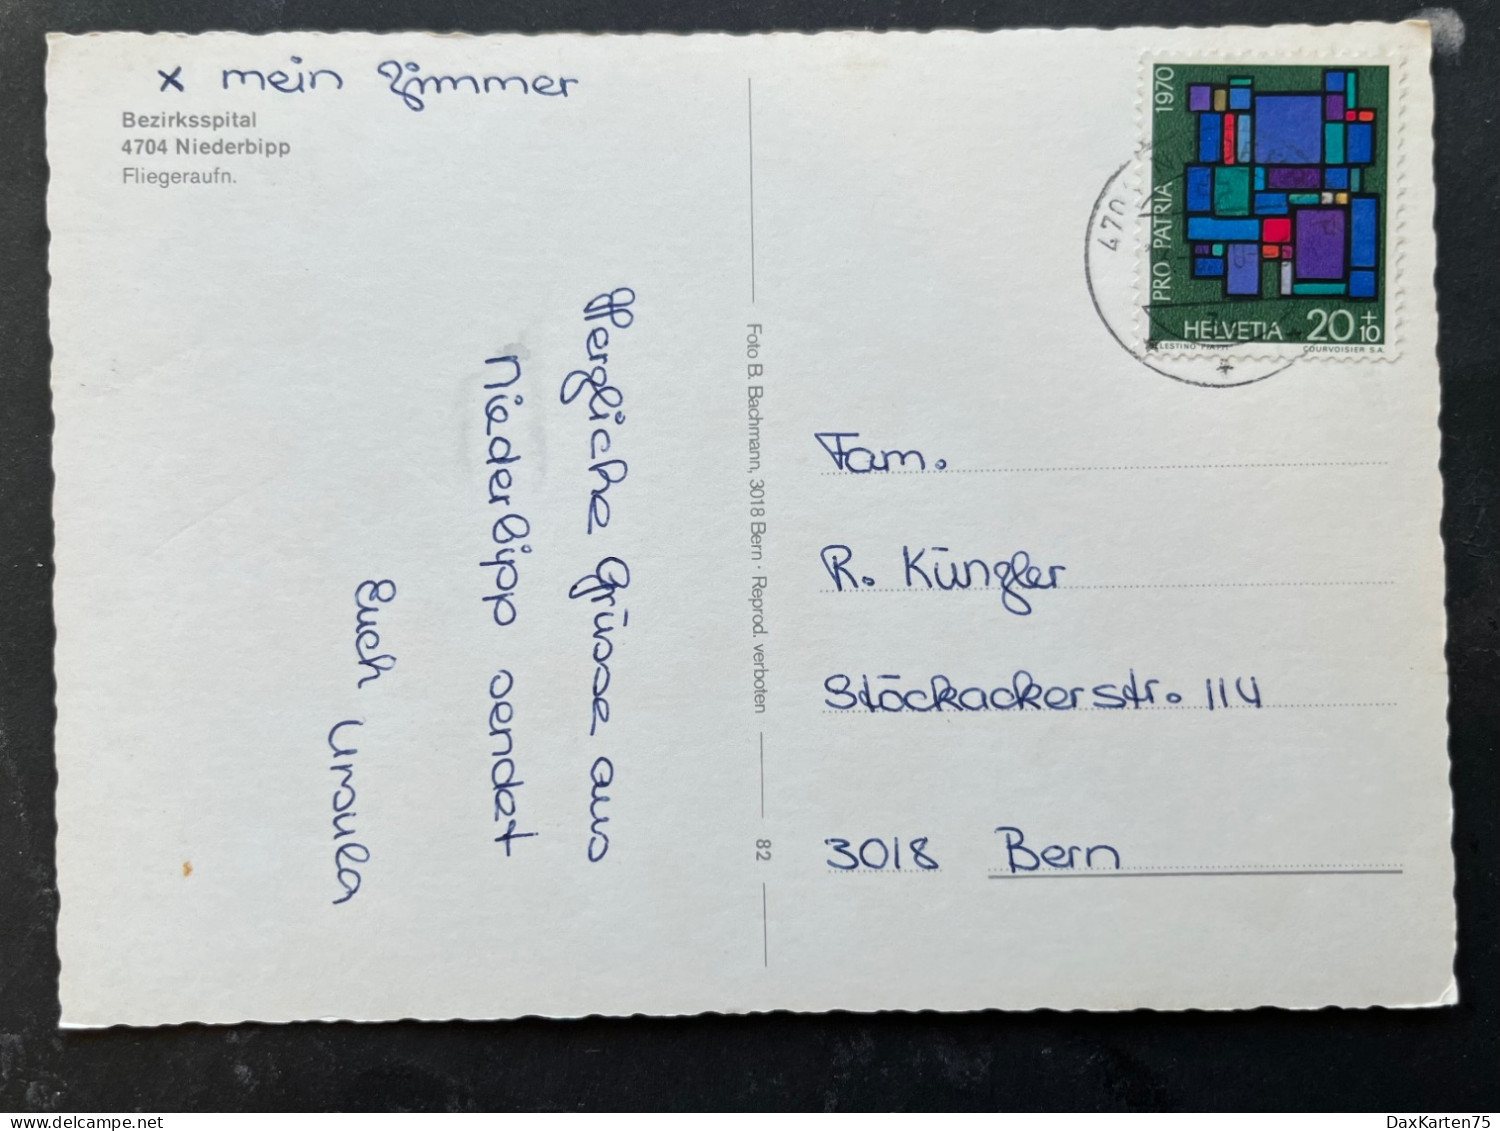 x mein Zimmer
Bezirksspital
4704 Niederbipp
Fliegeraufn.
Herzliche Grüsse aus
Niederbipp sendet
Euch Ursula
Foto B. Bachmann, 3018 Bern · Reprod. verboten
82
PRO PATRIA 1970
HELVETIA 20+10
COURVOISIER S.A.
470
Fam.
R. Künzler
Stöckackerstr. 114
3018 Bern
DaxKarten75